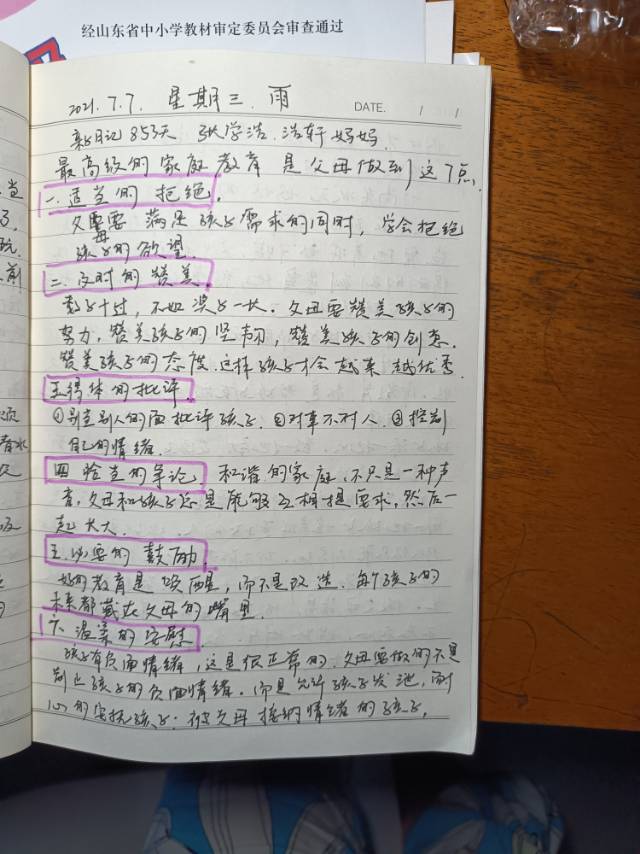 经山东省中小学教材审定委员会审查通过
2021.7.7. 星期三. 雨
DATE. / /
亲子日记853天 张学浩. 浩轩妈妈.
最高级的家庭教育是父母做到这7点.
一.适当的拒绝.
父母需要满足孩子需求的同时, 学会拒绝
孩子的欲望.
二.及时的赞美
数子十过, 不如奖子一长. 父母要赞美孩子的
努力, 赞美孩子的坚韧, 赞美孩子的创意.
赞美孩子的态度. 这样孩子才会越来越优秀.
三.得体的批评.
①别当别人的面批评孩子. ②对事不对人. ③控制
自己的情绪.
四 恰当的争论. 和谐的家庭, 不只是一种声
音, 父母和孩子总是能够互相提要求, 然后一
起长大.
五.必要的鼓励.
好的教育是唤醒, 而不是改造. 每个孩子的
未来都藏在父母的嘴里.
六 温柔的安慰
孩子有负面情绪, 这是很正常的. 父母要做的不是
制止孩子的负面情绪. 而是允许孩子发泄, 耐
心的安抚孩子. 被父母接纳情绪的孩子,